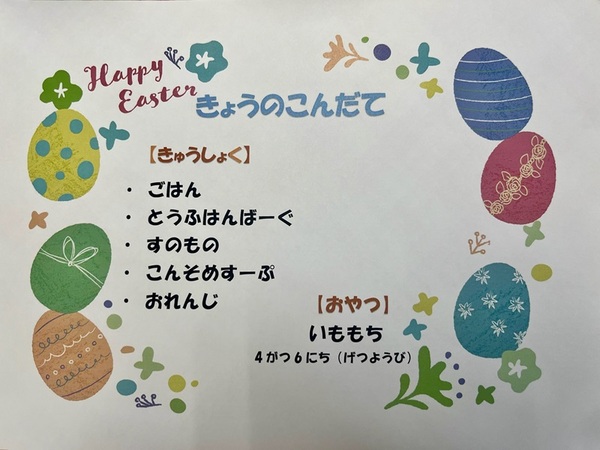 Happy
Easter
きょうのこんだて
【きゅうしょく】
・ ごはん
・ とうふはんばーぐ
・ すのもの
・ こんそめすーぷ
・ おれんじ
【おやつ】
いももち
4がつ6にち（げつようび）